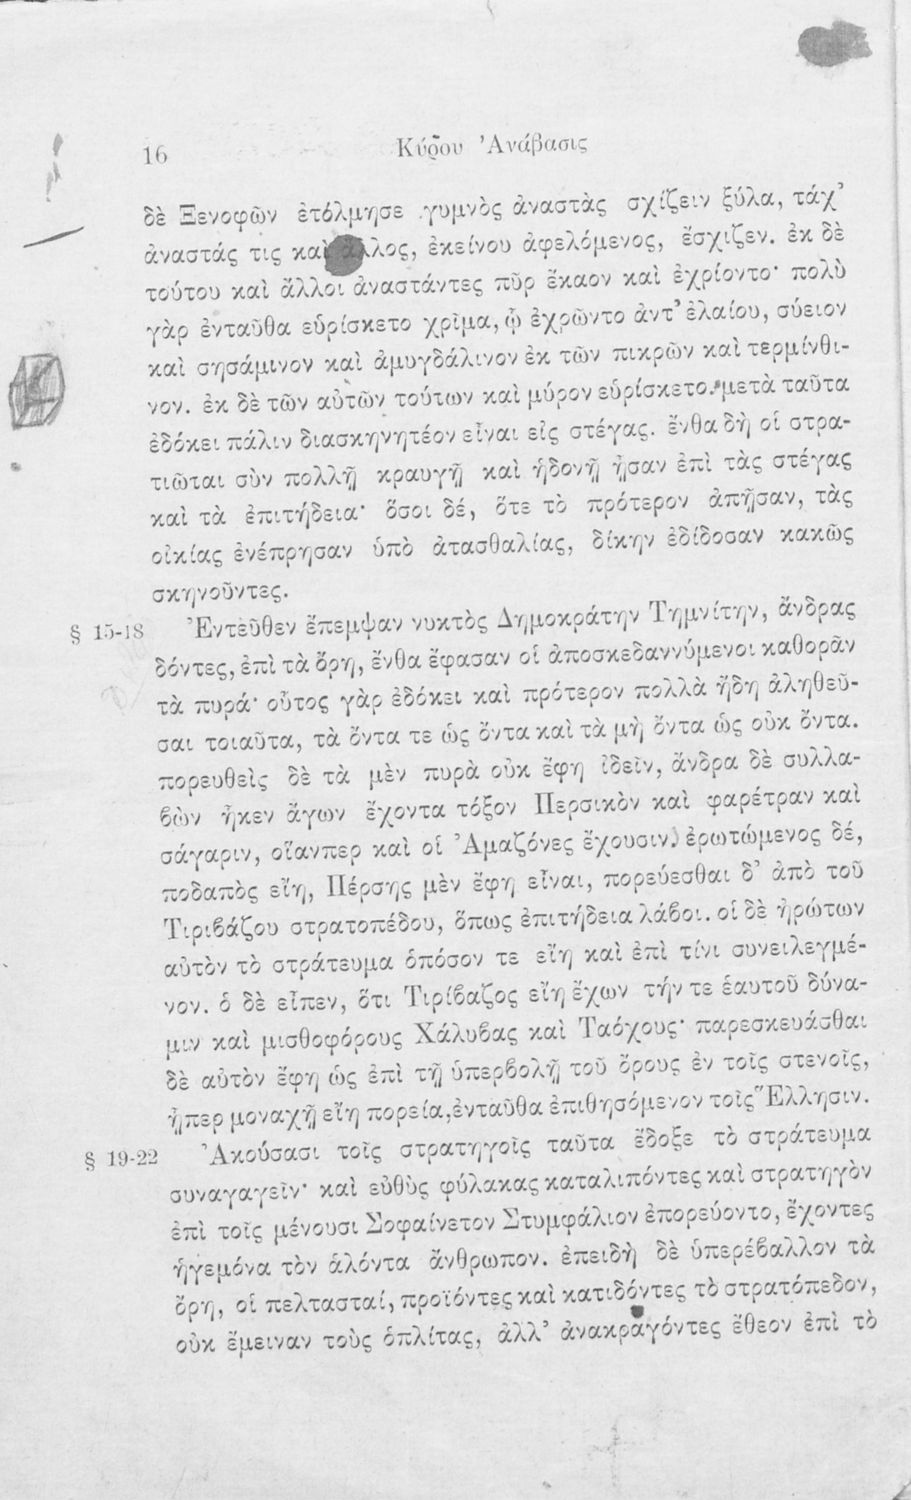 16
Κύρου Ἀνάβασις
δὲ Ξενοφῶν ἐτόλμησε γυμνὸς ἀναστὰς σχίζειν ξύλα, τάχ’
ἀναστάς τις καὶ ἄλλος, ἐκείνου ἀφελόμενος, ἔσχιζεν. ἐκ δὲ
τούτου καὶ ἄλλοι ἀναστάντες πῦρ ἔκαον καὶ ἐχρίοντο· πολὺ
γὰρ ἐνταῦθα εὑρίσκετο χρῖμα, ᾧ ἐχρῶντο ἀντ’ ἐλαίου, σύειον
καὶ σησάμινον καὶ ἀμυγδάλινον ἐκ τῶν πικρῶν καὶ τερμίνθι-
νον. ἐκ δὲ τῶν αὐτῶν τούτων καὶ μύρον εὑρίσκετο. μετὰ ταῦτα
ἐδόκει πάλιν διασκηνητέον εἶναι εἰς στέγας. ἔνθα δὴ οἱ στρα-
τιῶται σὺν πολλῇ κραυγῇ καὶ ἡδονῇ ᾖσαν ἐπὶ τὰς στέγας
καὶ τὰ ἐπιτήδεια· ὅσοι δέ, ὅτε τὸ πρότερον ἀπῇσαν, τὰς
οἰκίας ἐνέπρησαν ὑπὸ ἀτασθαλίας, δίκην ἐδίδοσαν κακῶς
σκηνοῦντες.
§ 15-18 Ἐντεῦθεν ἔπεμψαν νυκτὸς Δημοκράτην Τημνίτην, ἄνδρας
δόντες, ἐπὶ τὰ ὄρη, ἔνθα ἔφασαν οἱ ἀποσκεδαννύμενοι καθορᾶν
τὰ πυρά· οὗτος γὰρ ἐδόκει καὶ πρότερον πολλὰ ἤδη ἀληθεῦ-
σαι τοιαῦτα, τὰ ὄντα τε ὡς ὄντα καὶ τὰ μὴ ὄντα ὡς οὐκ ὄντα.
πορευθεὶς δὲ τὰ μὲν πυρὰ οὐκ ἔφη ἰδεῖν, ἄνδρα δὲ συλλα-
βὼν ἧκεν ἄγων ἔχοντα τόξον Περσικὸν καὶ φαρέτραν καὶ
σάγαριν, οἵανπερ καὶ οἱ Ἀμαζόνες ἔχουσιν. ἐρωτώμενος δέ,
ποδαπὸς εἴη, Πέρσης μὲν ἔφη εἶναι, πορεύεσθαι δ’ ἀπὸ τοῦ
Τιριβάζου στρατοπέδου, ὅπως ἐπιτήδεια λάβοι. οἱ δὲ ἠρώτων
αὐτὸν τὸ στράτευμα ὁπόσον τε εἴη καὶ ἐπὶ τίνι συνειλεγμέ-
νον. ὁ δὲ εἶπεν, ὅτι Τιρίβαζος εἴη ἔχων τήν τε ἑαυτοῦ δύνα-
μιν καὶ μισθοφόρους Χάλυβας καὶ Ταόχους· παρεσκευάσθαι
δὲ αὐτὸν ἔφη ὡς ἐπὶ τῇ ὑπερβολῇ τοῦ ὄρους ἐν τοῖς στενοῖς,
ᾗπερ μοναχῇ εἴη πορεία, ἐνταῦθα ἐπιθησόμενον τοῖς Ἕλλησιν.
§ 19-22 Ἀκούσασι τοῖς στρατηγοῖς ταῦτα ἔδοξε τὸ στράτευμα
συναγαγεῖν· καὶ εὐθὺς φύλακας καταλιπόντες καὶ στρατηγὸν
ἐπὶ τοῖς μένουσι Σοφαίνετον Στυμφάλιον ἐπορεύοντο, ἔχοντες
ἡγεμόνα τὸν ἁλόντα ἄνθρωπον. ἐπειδὴ δὲ ὑπερέβαλλον τὰ
ὄρη, οἱ πελτασταί, προϊόντες καὶ κατιδόντες τὸ στρατόπεδον,
οὐκ ἔμειναν τοὺς ὁπλίτας, ἀλλ’ ἀνακραγόντες ἔθεον ἐπὶ τὸ